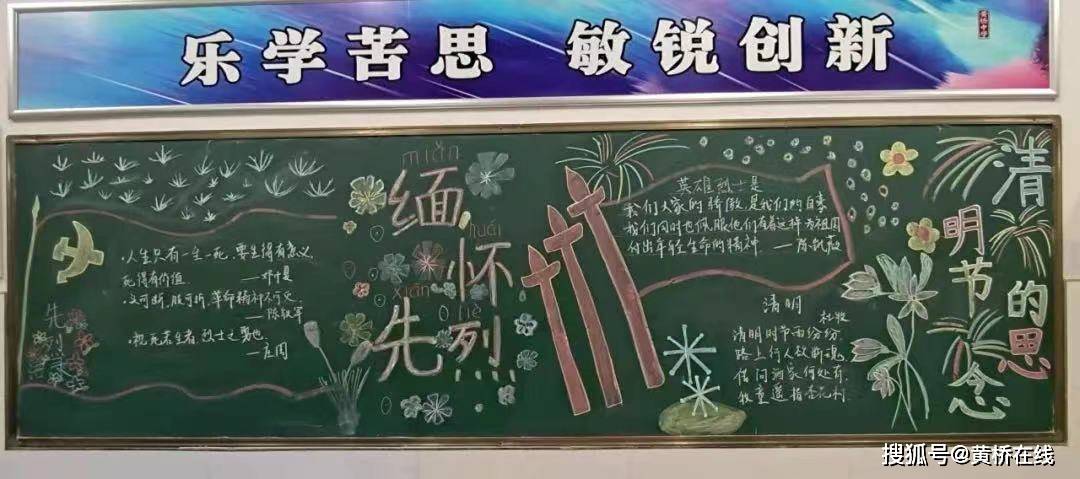 乐学苦思 敏锐创新
黄桥中学
miǎn
缅
huái
怀
xiān
先
liè
烈
先烈
·人生只有一生一死,要生得有意义,
死得有价值.
——邓中夏
·头可断,肢可折,革命精神不可灭.
——陈铁军
·视死若生者,烈士之勇也.
——庄周
英雄烈士是
我们大家的骄傲,是我们的自豪
我们同时也佩服他们有着这种为祖国
付出年轻生命的精神.——陈凯散
清明
杜牧
清明时节雨纷纷.
路上行人欲断魂,
借问酒家何处有.
牧童遥指杏花村.
清明节的思念
搜狐号@黄桥在线